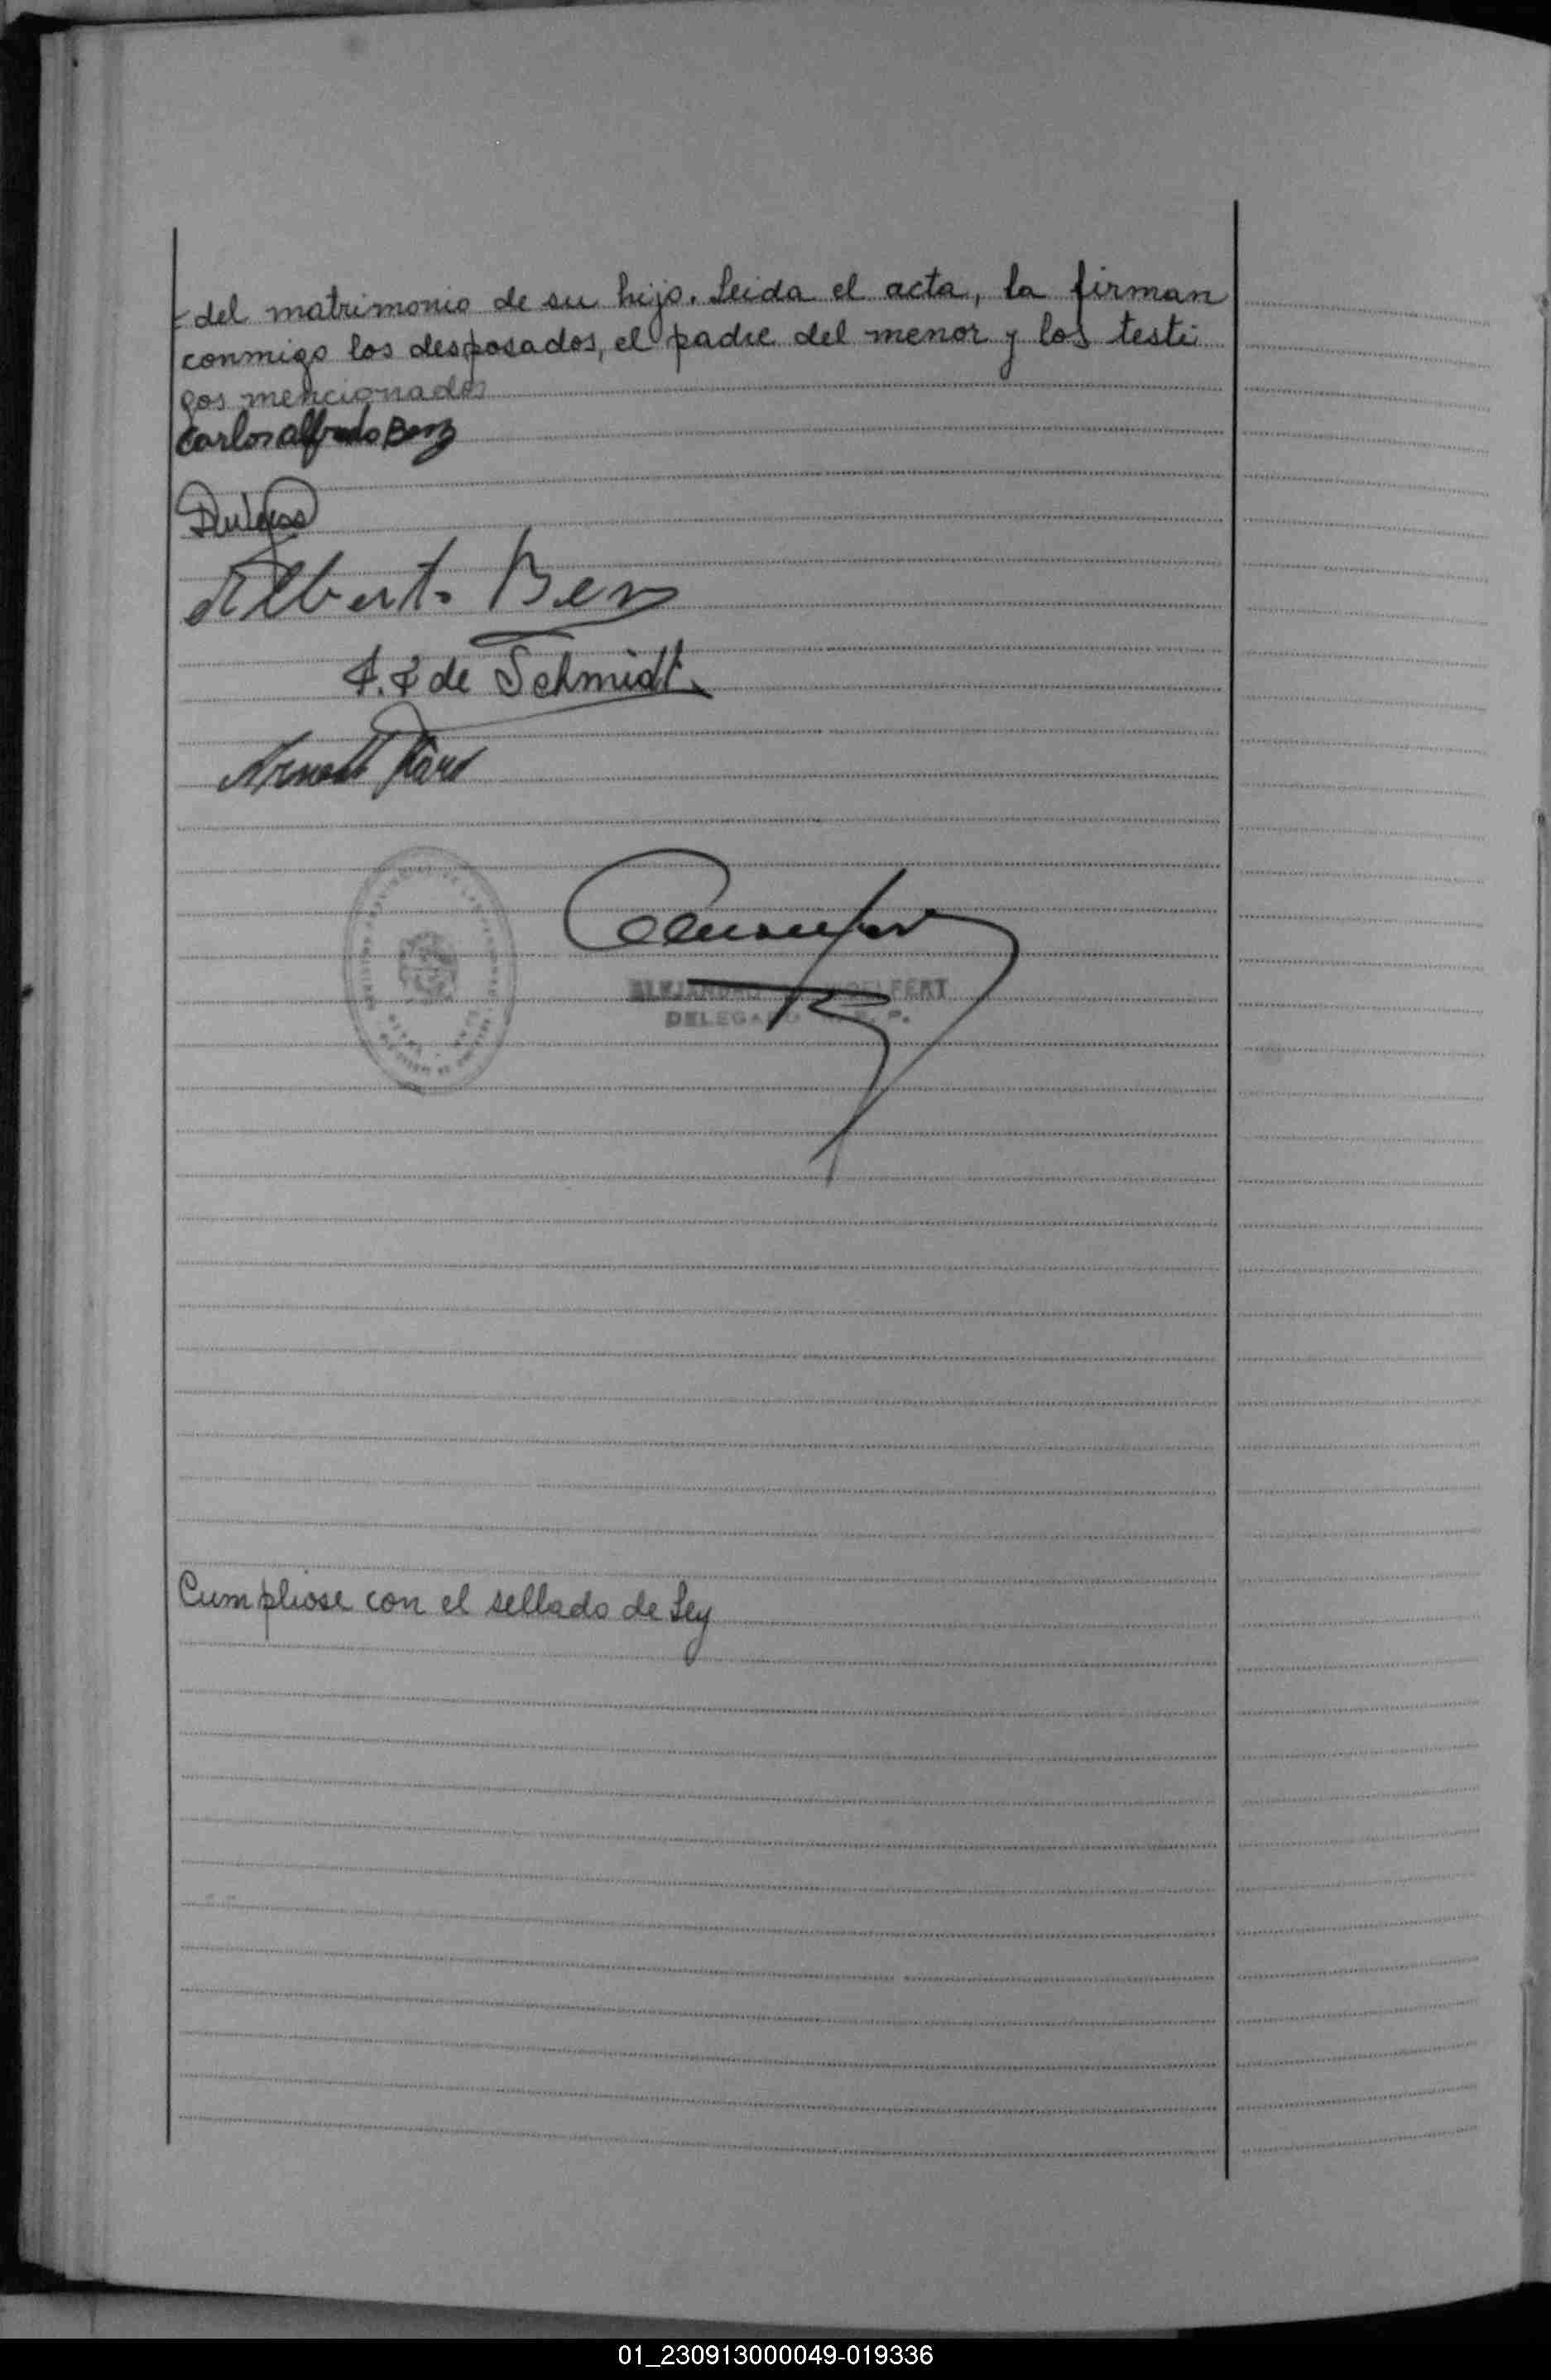 del matrimonio de su hijo. Leida el acta, la firman
conmigo los desposados, el padre del menor y los testi
gos mencionados
Carlos Alfredo Benz
Alberto Benz
de Schmidt
ALEJANDRO
DELEGADO
Cumpliose con el sellado de Ley
01_230913000049-019336